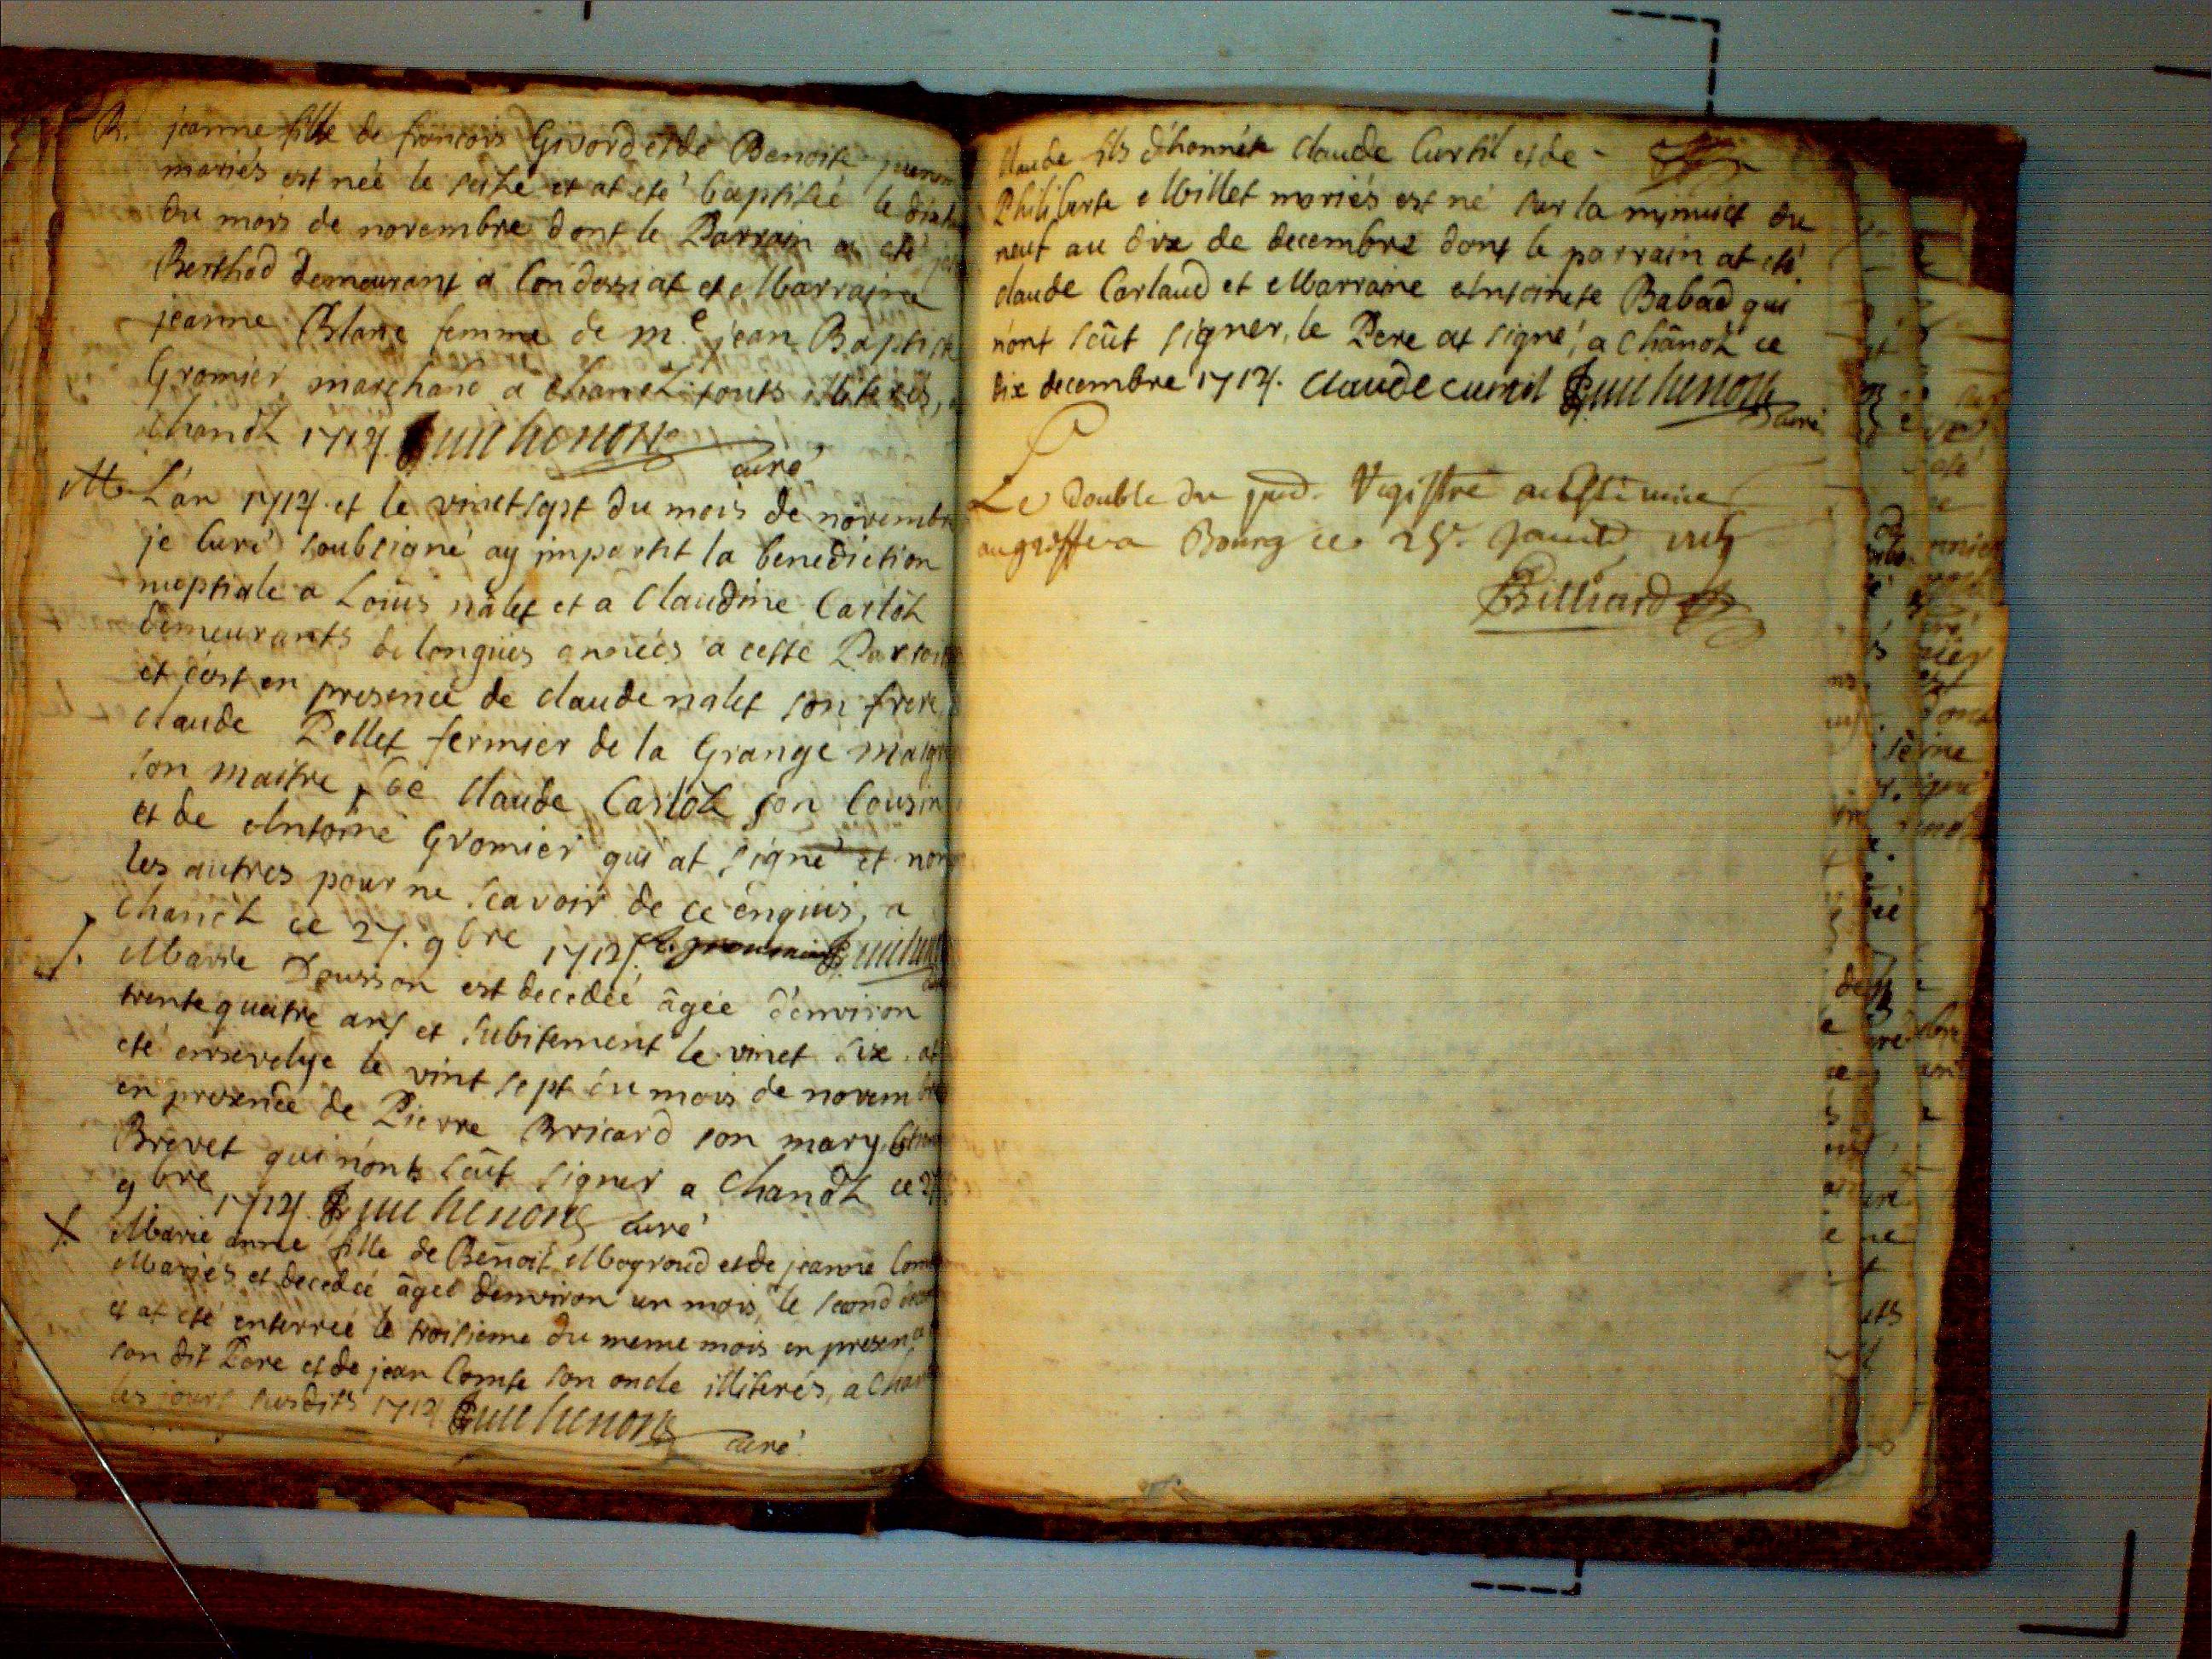 B. jeanne fille de francois Givord et de Benoite
mariés est née le seize et at eté baptisée le
du mois de novembre dont le Parrain at eté
Berthod demeurant a Condessiat et Marraine
jeanne Blanc femme de m.e jean Baptiste
Gromier marchand a Chanoz touts illiterés,
Chanoz 1714. Guichenon curé
M. L'an 1714. et le vinetsept du mois de novembre
je Curé soubsigné ay impartit la benediction
nuptiale a Loüis nalet et a Claudine Carloz
demeurants de longües années a cette
et c'est en presence de claude nalet son frere
claude Pollet fermier de la Grange
son maistre, de Claude Carloz son Cousin
et de Antoine Gromier qui at signé et non
les autres pour ne sçavoir de ce enquis, a
Chanoz ce 27. 9bre 1714.
Marie Dousson est decedée âgée d'environ
trente quatre ans et subitement le vinet six at
eté ensevelye le vint sept du mois de novembre
en presence de Pierre Bricard son mary
Brevet qui n'onts sçût signer a Chanoz ce 27
9bre 1714. Guichenon curé
Marie anne fille de Benoit Mogroud et de jeanne
Mariés et decedée âgée d'environ un mois, le second
et at eté enterrée le troisieme du meme mois en presence
son dit Pere et de jean Comte son oncle illiterés, a
les jours susdits 1714 Guichenon curé
Claude fils d'honnête Claude Curtil et de -
Philiberte Millet mariés est né sur la minuict du
neuf au dix de decembre dont le parrain at eté
claude Carlaud et Marraine Antoinete Babad qui
n'ont sçût signer, le Pere at signé, a Chânoz ce
dix decembre 1714. Claude curtil Guichenon
curé
Le double du Registre
au greffe a Bourg ce 25.
Billiard